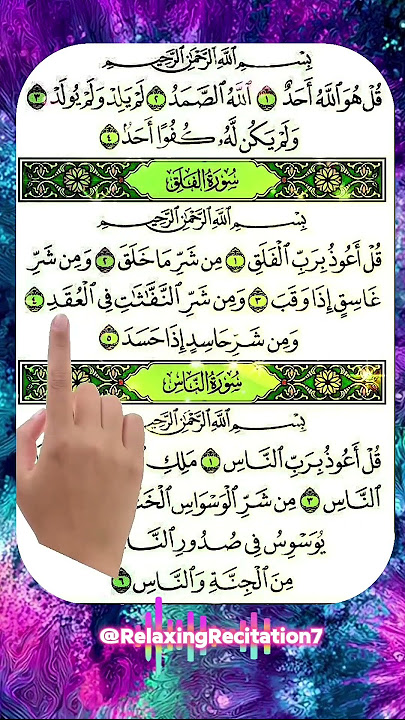 بِسْمِ ٱللَّهِ ٱلرَّحْمَٰنِ ٱلرَّحِيمِ
قُلْ هُوَ ٱللَّهُ أَحَدٌ ١ ٱللَّهُ ٱلصَّمَدُ ٢ لَمْ يَلِدْ وَلَمْ يُولَدْ ٣
وَلَمْ يَكُن لَّهُۥ كُفُوًا أَحَدٌۢ ٤
سُورَةُ ٱلْفَلَقِ
بِسْمِ ٱللَّهِ ٱلرَّحْمَٰنِ ٱلرَّحِيمِ
قُلْ أَعُوذُ بِرَبِّ ٱلْفَلَقِ ١ مِن شَرِّ مَا خَلَقَ ٢ وَمِن شَرِّ
غَاسِقٍ إِذَا وَقَبَ ٣ وَمِن شَرِّ ٱلنَّفَّٰثَٰتِ فِى ٱلْعُقَدِ ٤
وَمِن شَرِّ حَاسِدٍ إِذَا حَسَدَ ٥
سُورَةُ ٱلنَّاسِ
بِسْمِ ٱللَّهِ ٱلرَّحْمَٰنِ ٱلرَّحِيمِ
قُلْ أَعُوذُ بِرَبِّ ٱلنَّاسِ ١ مَلِكِ
ٱلنَّاسِ ٣ مِن شَرِّ ٱلْوَسْوَاسِ
يُوَسْوِسُ فِى صُدُورِ
مِنَ ٱلْجِنَّةِ وَٱلنَّاسِ ٦
@RelaxingRecitation7